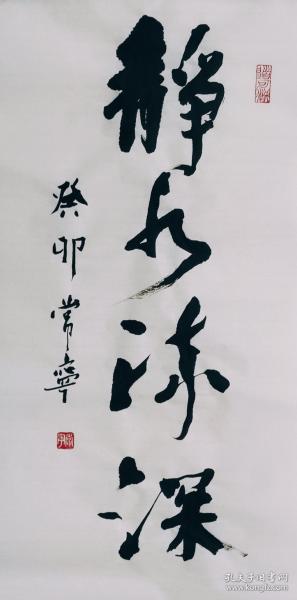 靜水流深
癸卯 常寧
孔夫子旧书网